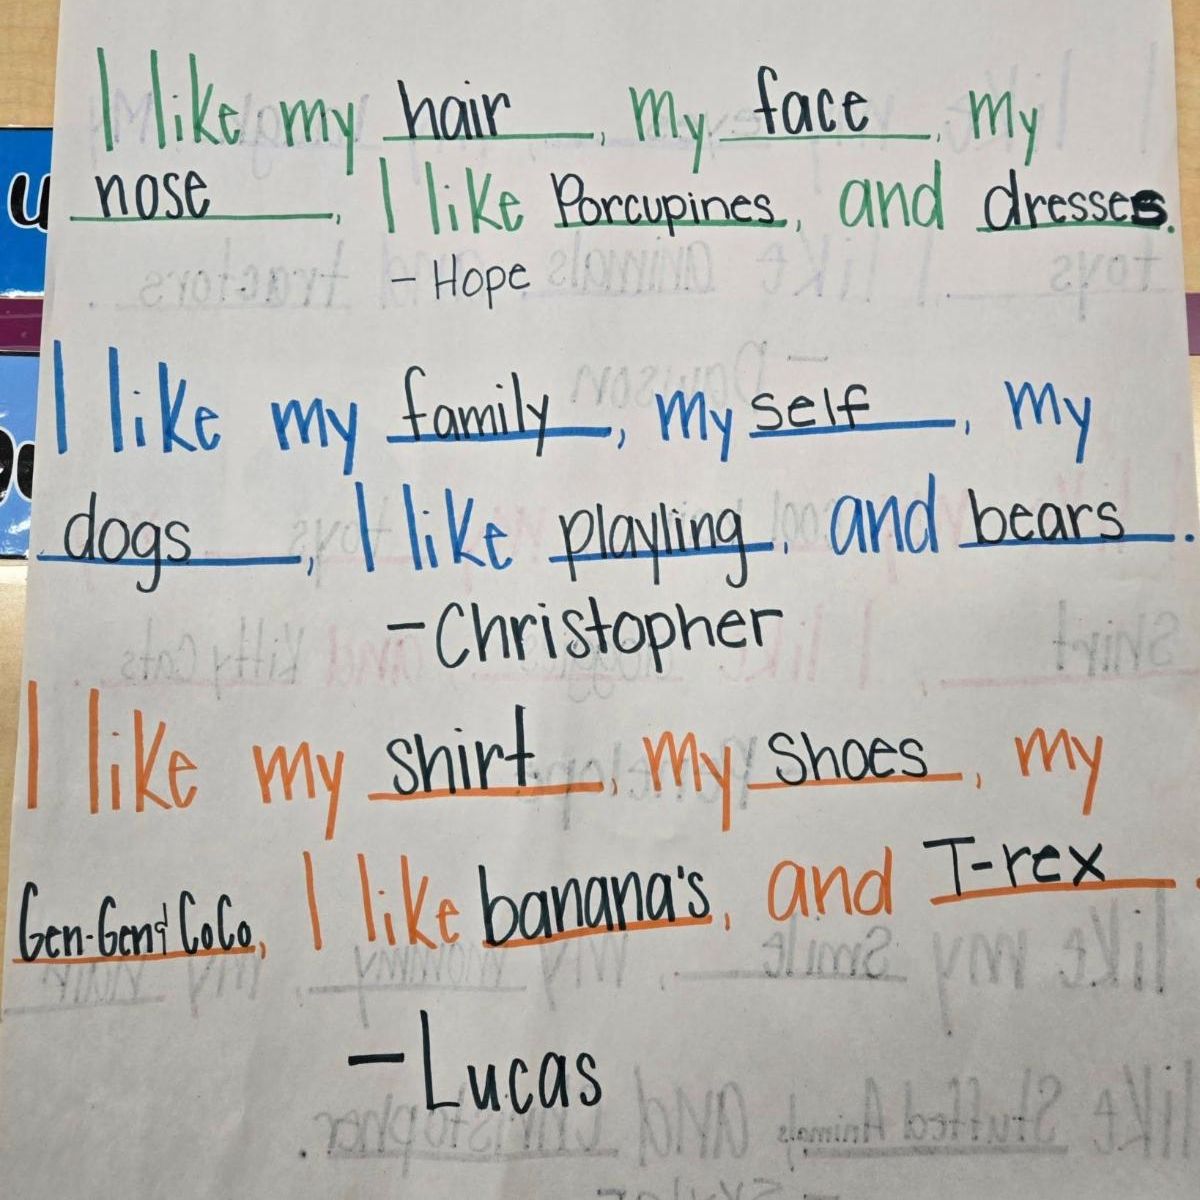 I like my hair, my face, my
nose, I like Porcupines, and dresses.
- Hope
I like my family, my self, my
dogs, I like playling, and bears.
- Christopher
I like my shirt, my shoes, my
Gen-Gen & CoCo, I like banana's, and T-rex.
- Lucas